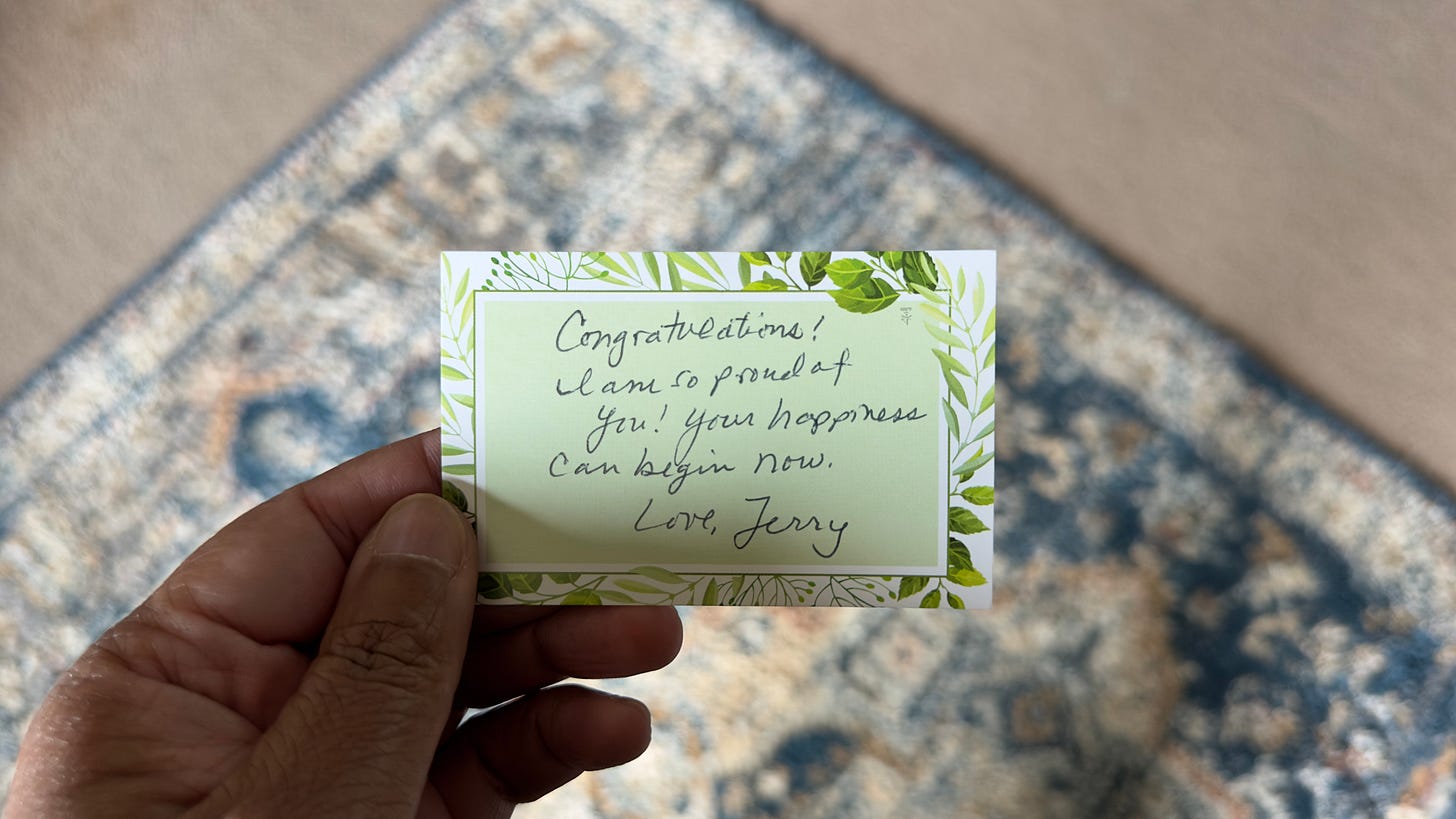 Congratulations!
I am so proud of
you! Your happiness
can begin now.
Love, Jerry